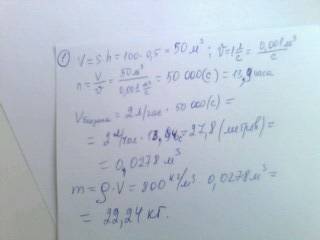 ① V = S·h = 100·0,5 = 50 м³ ; v = 1 л/с = 0,001 м³/с
n = V/v = 50 м³ / 0,001 м³/с = 50 000 (с) = 13,9 часа
V бензина = 2 л/час · 50 000 (с) =
= 2 л/час · 13,9 ч = 27,8 (литров) =
= 0,0278 м³
m = ρ·V = 800 кг/м³ · 0,0278 м³ =
= 22,24 кг.